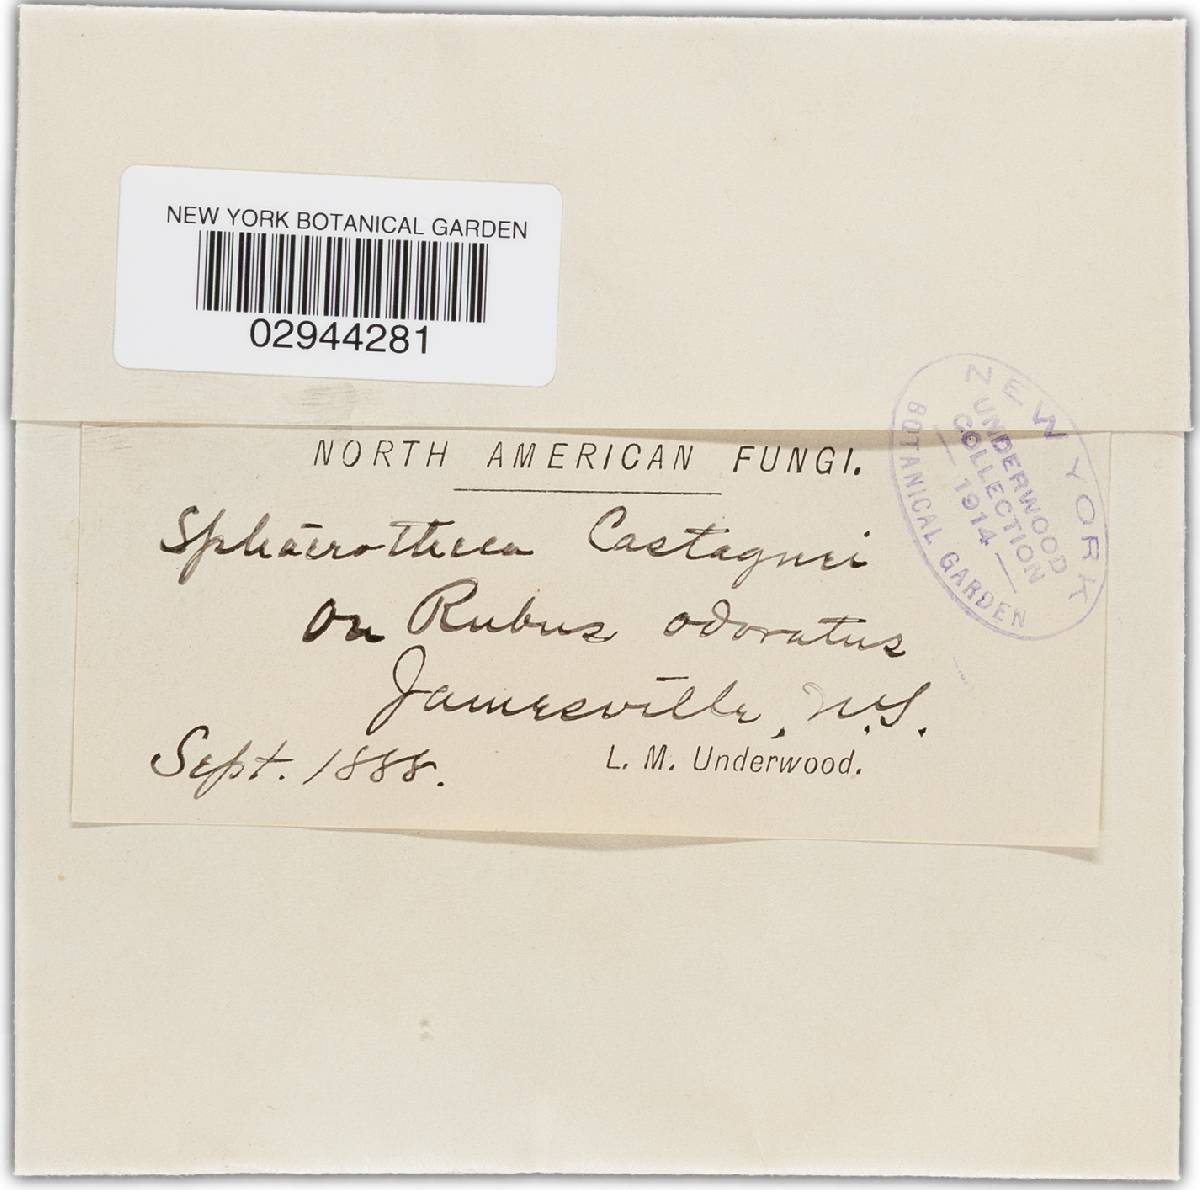 NEW YORK BOTANICAL GARDEN
02944281
NEW YORK
BOTANICAL GARDEN
UNDERWOOD
COLLECTION
— 1914 —
NORTH AMERICAN FUNGI.
Sphaerotheca Castagnei
on Rubus odoratus
Jamesville, N.Y.
Sept. 1888.
L. M. Underwood.